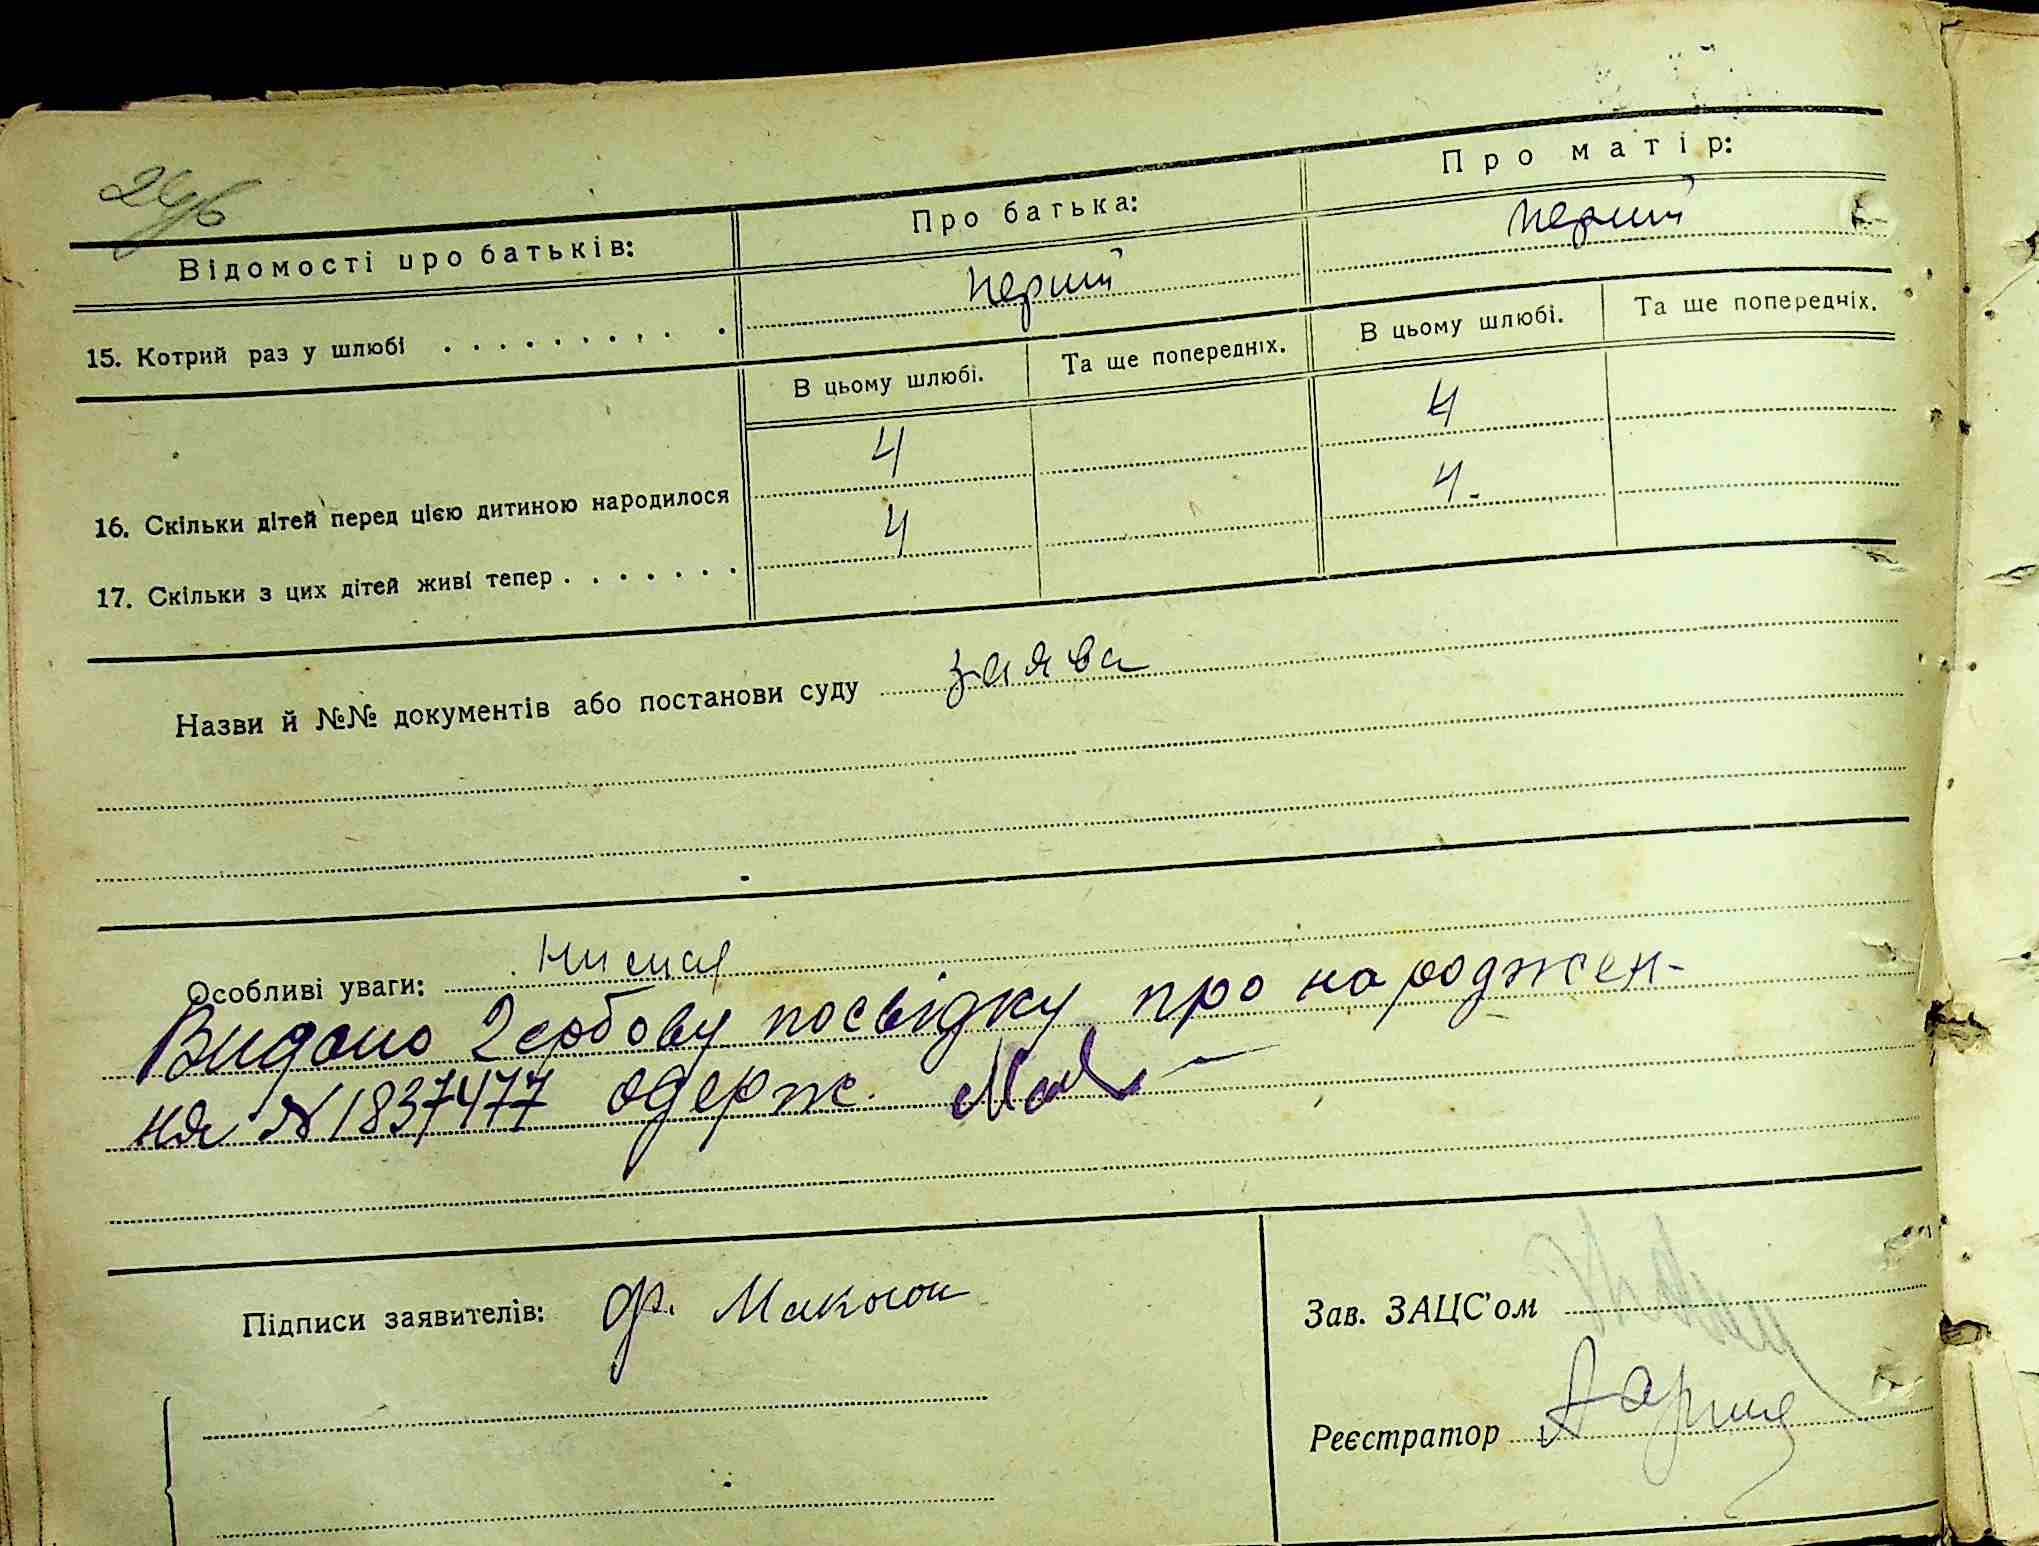 Відомості про батьків:
Про батька:
Про матір:
15. Котрий раз у шлюбі . . . . . . . . . .
перший
перший
В цьому шлюбі.
Та ще попередніх.
В цьому шлюбі.
Та ще попередніх.
16. Скільки дітей перед цією дитиною народилося
4
4
17. Скільки з цих дітей живі тепер . . . . . . .
4
4.
Назви й №№ документів або постанови суду
заява
Особливі уваги:
Видано
посвідку про народжен-
ня № 1837477 одерж.
Підписи заявителів:
Макогон
Зав. ЗАЦС'ом
Реєстратор